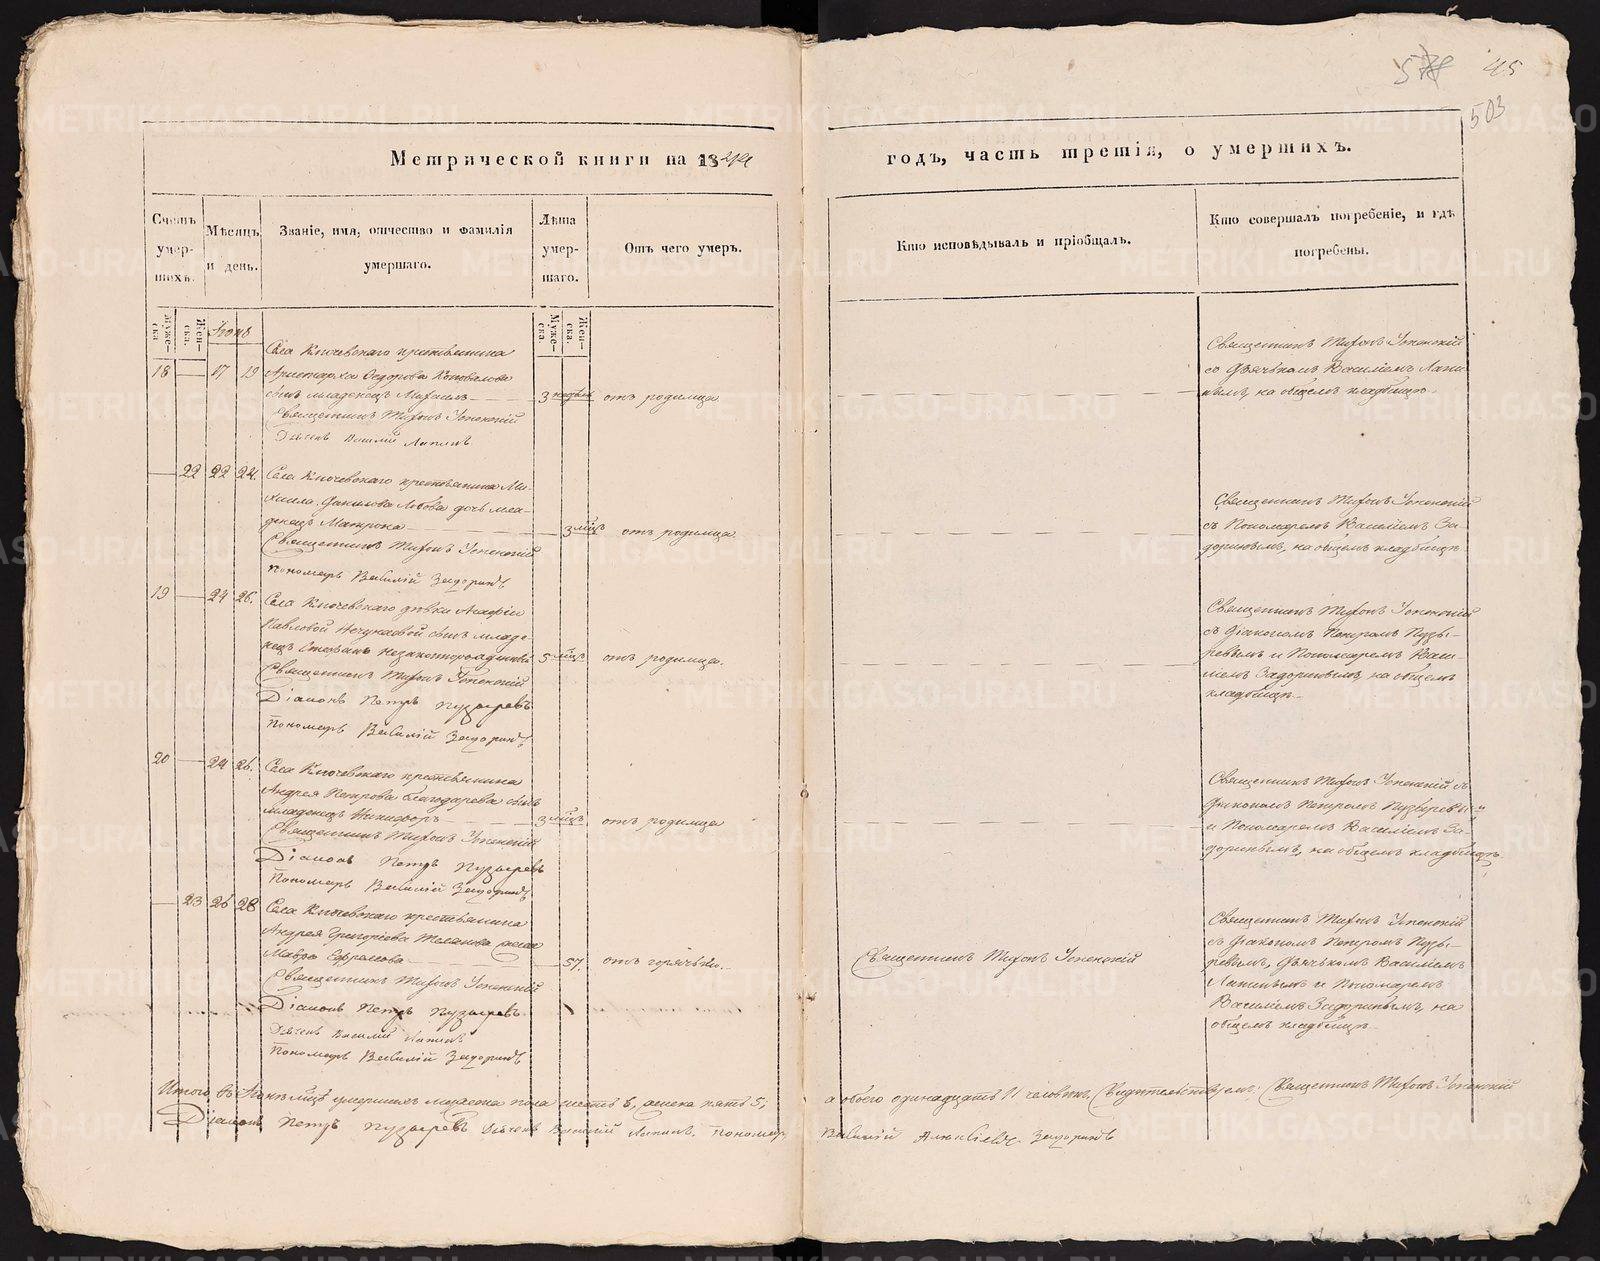 45
503
Метрической книги на 18
годъ, часть третія, о умершихъ.
Счетъ умер-шихъ.
Мѣсяцъ и день.
Званіе, имя, отчество и фамилія умершаго.
Лѣта умер-шаго.
Отъ чего умеръ.
Кто исповѣдывалъ и пріобщалъ.
Кто совершалъ погребеніе, и гдѣ погребены.
Муже-ска
Жен-ска.
Муже-ска.
Жен-ска.
Села Ключевскаго крестьянина
18 17 19 Аристарха Федорова Коновалова
сынъ младенецъ Михаилъ 3 недѣль отъ родимца
Священникъ Тихонъ Успенскій
Дьячекъ Василий Лапинъ
Священникъ Тихонъ Успенскій
съ Дьячькомъ Василіемъ Лапи-
нымъ, на общемъ кладбищѣ.
22 22 24. Села Ключевскаго крестьянина Ми-
хаила Данилова дочь мла-
денецъ Матрона 3 мѣс. отъ родимца
Священникъ Тихонъ Успенскій
Пономарь Василій Задоринъ
Священникъ Тихонъ Успенскій
съ Пономаремъ Василіемъ За-
доринымъ, на общемъ кладбищѣ
19 24 26. Села Ключевскаго дѣвки
Павловой сынъ младе-
нецъ Стефанъ незаконнорожденный 5 отъ родимца.
Священникъ Тихонъ Успенскій
Діаконъ Петръ Пузыревъ
Пономарь Василій Задоринъ
Священникъ Тихонъ Успенскій
съ Діакономъ Петромъ Пузы-
ревымъ и Пономаремъ Васи-
ліемъ Задоринымъ, на общемъ
кладбищѣ
20 24 26. Села Ключевскаго крестьянина
Андрея Петрова Благодарева сынъ
младенецъ Никифоръ 3 отъ родимца
Священникъ Тихонъ Успенскій
Діаконъ Петръ Пузыревъ
Пономарь Василій Задоринъ
Священникъ Тихонъ Успенскій съ
Діакономъ Петромъ Пузыревы
и Пономаремъ Василіемъ За-
доринымъ, на общемъ кладбищѣ
23 26 28 Села Ключевскаго крестьянина
Андрея Григорьева жена
Мавра Ефремова 57. отъ горячьки.
Священникъ Тихонъ Успенскій
Діаконъ Петръ Пузыревъ
Дьячекъ Василий Лапинъ
Пономарь Василій Задоринъ
Священникъ Тихонъ Успенскій
Священникъ Тихонъ Успенскій
съ Діакономъ Петромъ Пузы-
ревымъ, Дьячькомъ Василіемъ
Лапинымъ и Пономаремъ
Василіемъ Задоринымъ, на
общемъ кладбищѣ
Итого въ умершихъ мужеска пола шесть 6, женска пять 5, а обоего одинадцать 11 человѣкъ, Свидетельствуемъ: Священникъ Тихонъ Успенскій
Діаконъ Петръ Пузыревъ Дьячекъ Василий Лапинъ. Пономарь Василій Задоринъ
METRIKI.GASO-URAL.RU